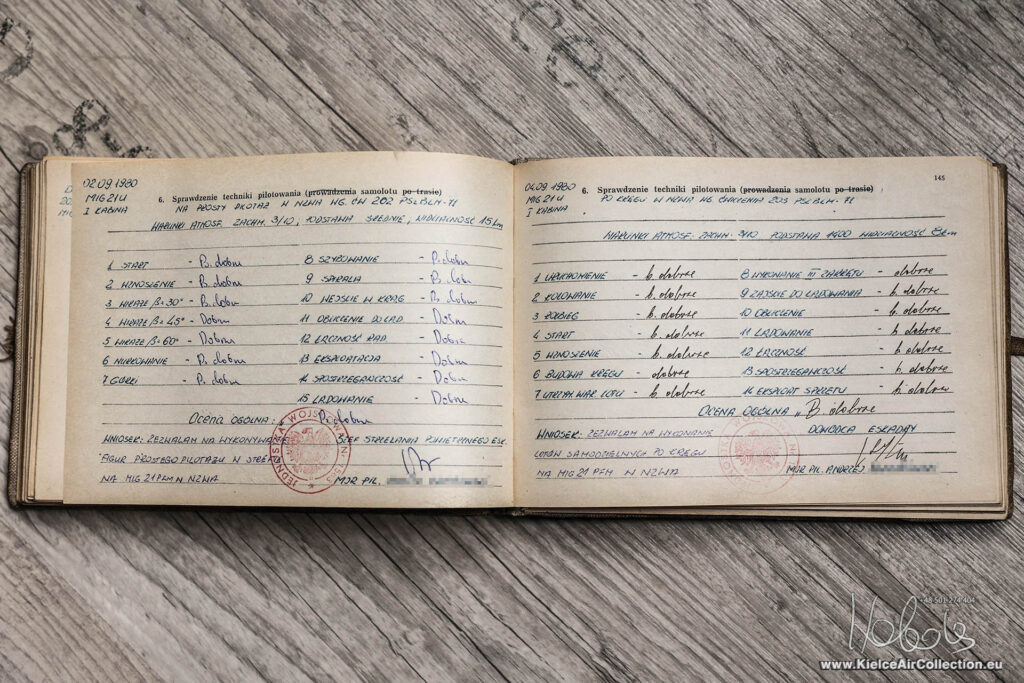 02.09.1980
MIG 21U
I KABINA
6. Sprawdzenie techniki pilotowania (prowadzenia samolotu po trasie)
NA PROSTY PILOTAŻ W NZWA WG. ĆW 202 PSZBLM-71
WARUNKI ATMOSF. ZACHM. 3/10, PODSTAWA ŚREDNIE, WIDZIALNOŚĆ 15 km
1 START - B. dobra 8 SZYBOWANIE - B. dobra
2 WZNOSZENIE - B. dobra 9 SPIRALA - B. dobra
3 WIRAŻE β=30° - B. dobra 10 WEJŚCIE W KRĄG - B. dobra
4 WIRAŻE β=45° - Dobra 11 OBLICZENIE DO LĄD - Dobra
5 WIRAŻE β=60° - Dobra 12 ŁĄCZNOŚĆ RAD - Dobra
6 NURKOWANIE - B. dobra 13 EKSPLOATACJA - Dobra
7 GÓRKI - B. dobra 14 SPOSTRZEGAWCZOŚĆ - Dobra
15 LĄDOWANIE - Dobra
OCENA OGÓLNA: B. dobra
WNIOSEK: ZEZWALAM NA SZEF STRZELANIA POWIETRZNEGO ESK.
FIGUR PROSTEGO PILOTAŻU W
NA MIG 21 PFM W NZWA MJR PIL.
JEDNOSTKA WOJSKOWA
04.09.1980
MIG 21U
I KABINA
6. Sprawdzenie techniki pilotowania (prowadzenia samolotu po trasie)
145
PO KRĘGU W NZWA WG ĆWICZENIA 203 PSZBLM-71
WARUNKI ATMOSF. ZACHM. 3/10 PODSTAWA 1400 WIDZIALNOŚĆ 8 km
1 URUCHOMIENIE - b. dobrze 8 WYKONANIE III ZAKRĘTU - dobrze
2 KOŁOWANIE - b. dobrze 9 ZAJŚCIE DO LĄDOWANIA - b. dobrze
3 ROZBIEG - b. dobrze 10 OBLICZENIE - dobrze
4 START - b. dobrze 11 LĄDOWANIE - b. dobrze
5 WZNOSZENIE - b. dobrze 12 ŁĄCZNOŚĆ - b. dobrze
6 BUDOWA KRĘGU - b. dobrze 13 SPOSTRZEGAWCZOŚĆ - b. dobrze
7 UTRZYM WAR. LOTU - b. dobrze 14 EKSPLOAT SPRZĘTU - b. dobrze
OCENA OGÓLNA "B. dobrze
WNIOSEK: ZEZWALAM NA WYKONANIE DOWÓDCA ESKADRY
LOTÓW SAMODZIELNYCH PO KRĘGU
NA MIG 21 PFM W NZWA MJR PIL. ANDRZEJ
+48 501 274 404
Nobodis
www.KielceAirCollection.eu